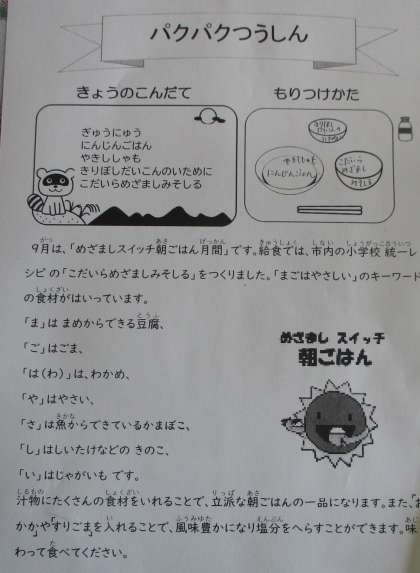 パクパクつうしん
きょうのこんだて
ぎゅうにゅう
にんじんごはん
やきししゃも
きりぼしだいこんのいために
こだいらめざましみそしる
もりつけかた
9月は、「めざましスイッチ朝ごはん月間」です。給食では、市内の小学校 統一レ
シピ の「こだいらめざましみそしる」をつくりました。「まごはやさしい」のキーワード
の食材がはいっています。
「ま」は まめからできる豆腐、
「ご」はごま、
「は(わ)」は、わかめ、
「や」はやさい、
「さ」は魚からできているかまぼこ、
「し」はしいたけなどの きのこ、
「い」はじゃがいも です。
めざまし スイッチ
朝ごはん
汁物にたくさんの食材をいれることで、立派な朝ごはんの一品になります。また、「お
かか」や「すりごま」を入れることで、風味豊かになり塩分をへらすことができます。味
わって食べてください。